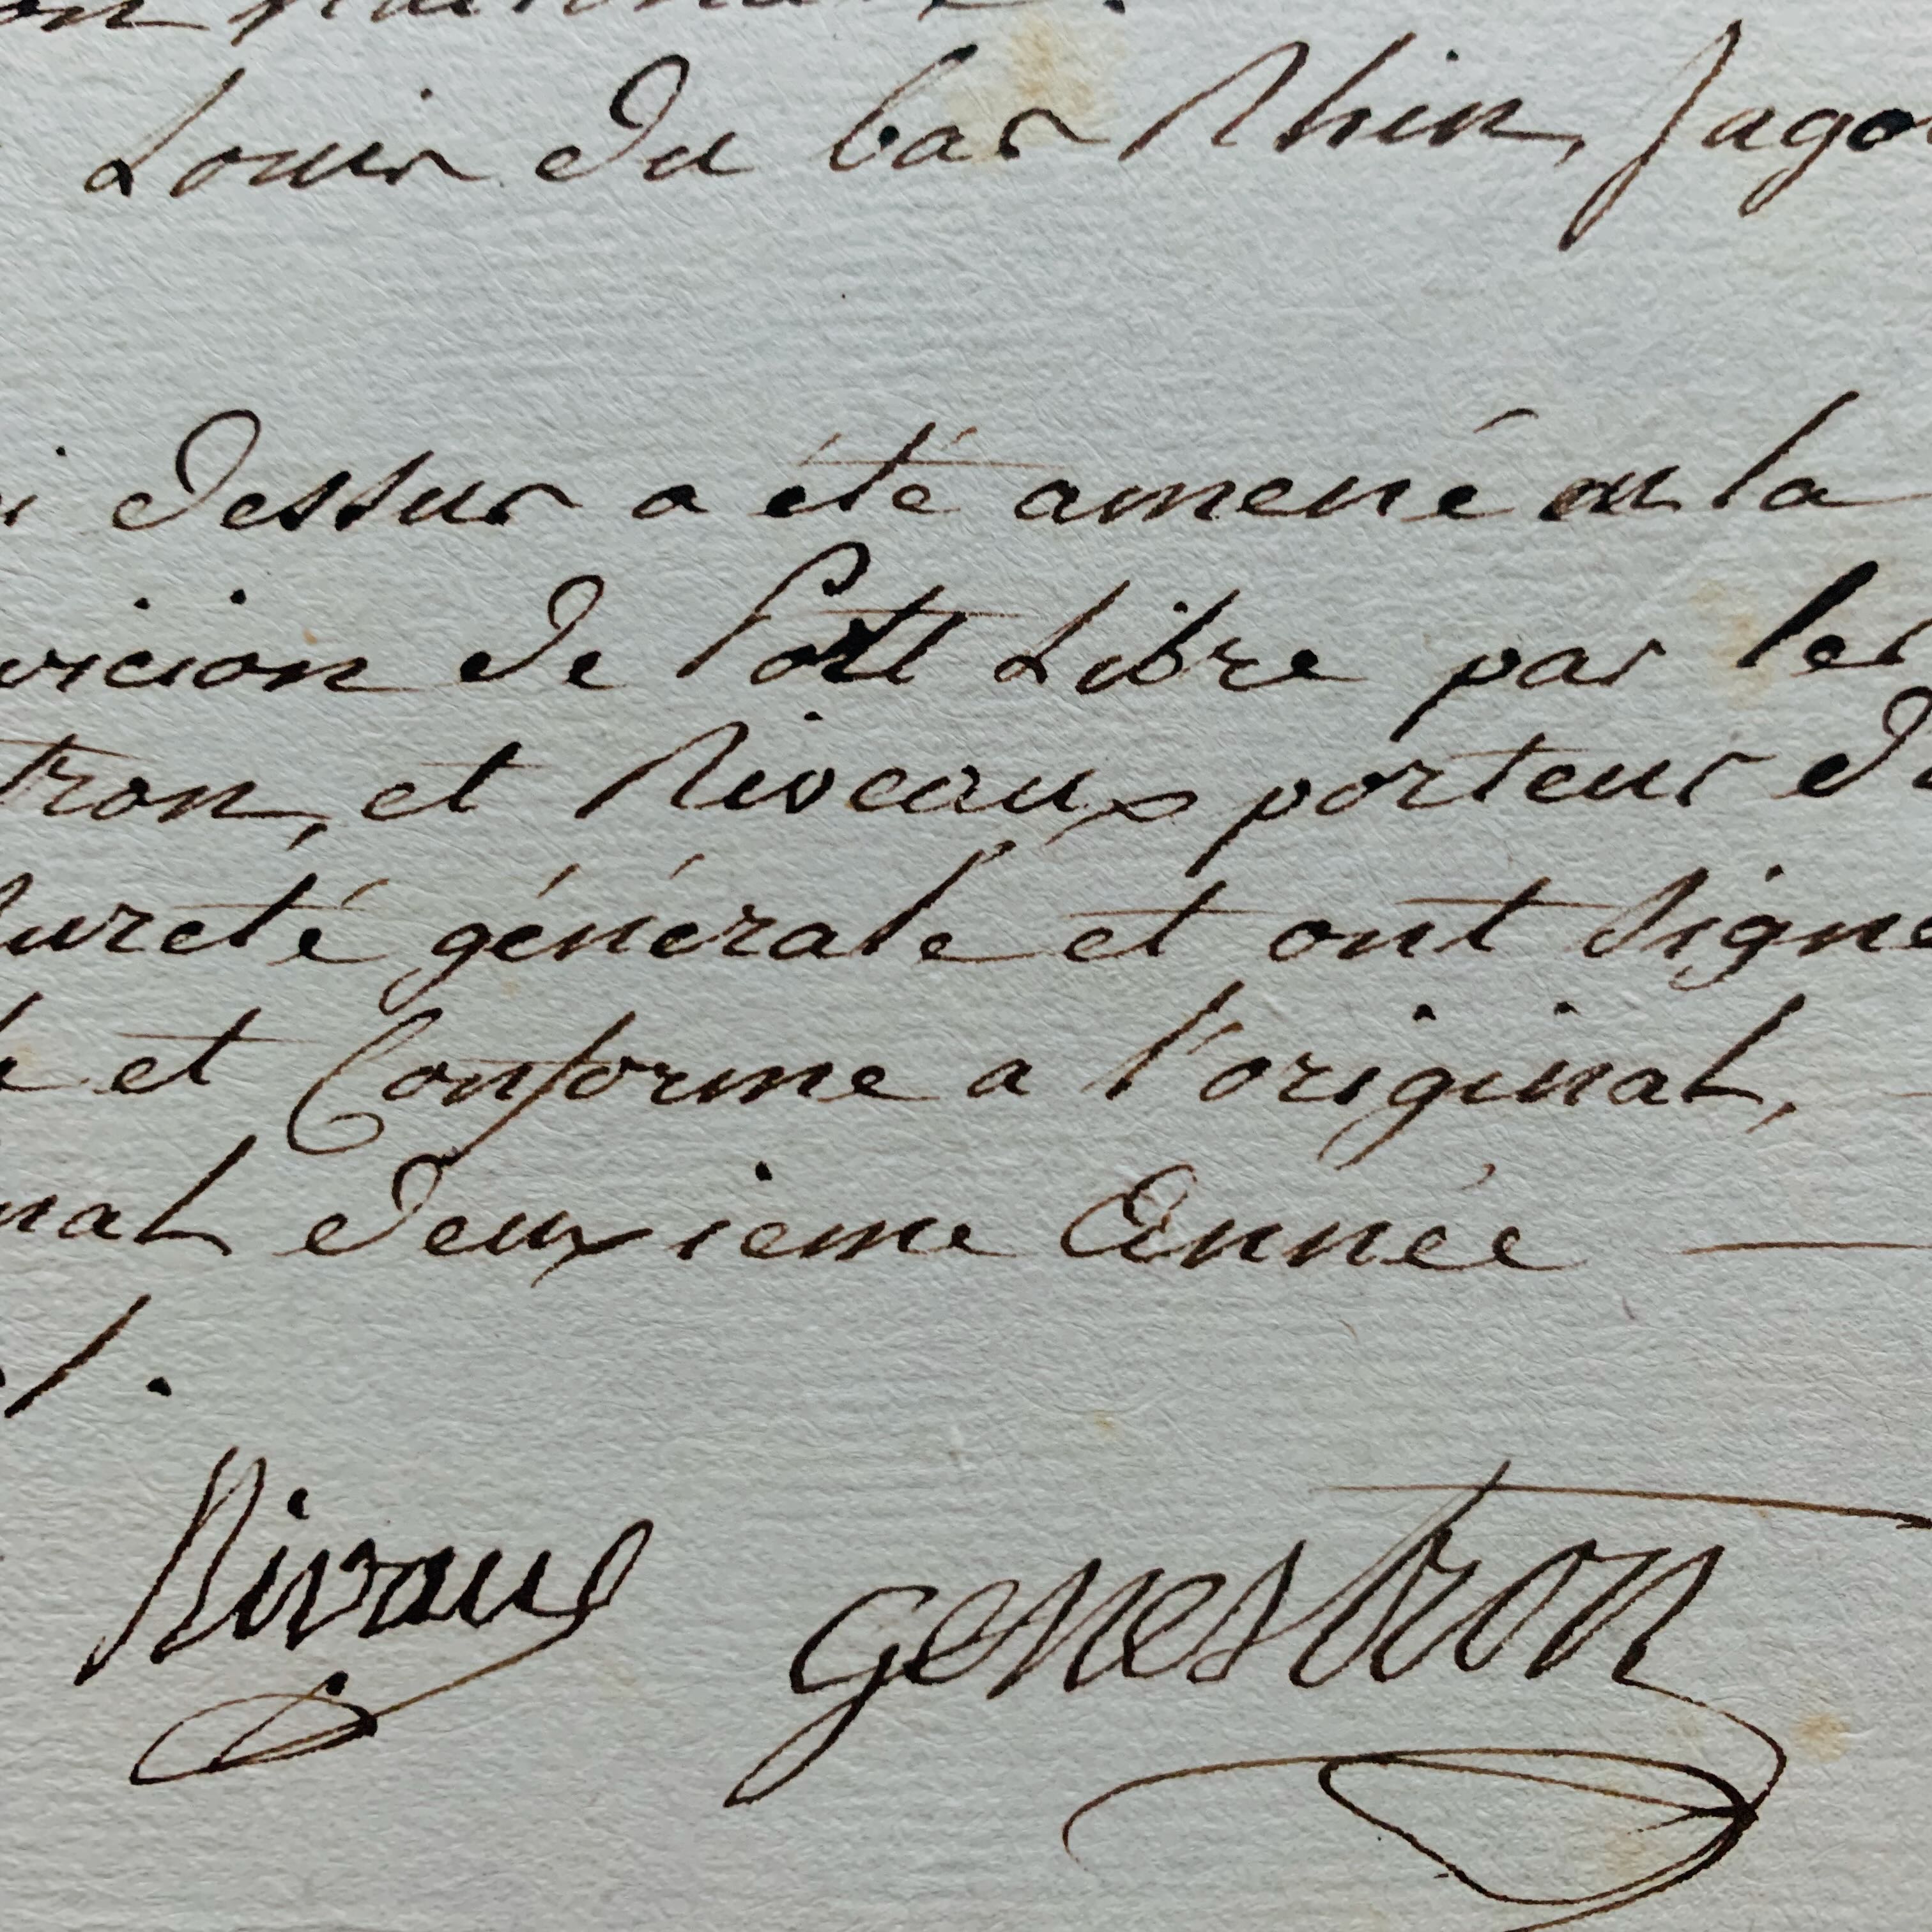 Louis du bas Rhin, Jago
dessus a été amené en la
de Port Libre par les
tron, et Riveaux porteur d
sureté générale et ont signé
et Conforme a l'original,
nal deuxieme Année
Rivaux genestron